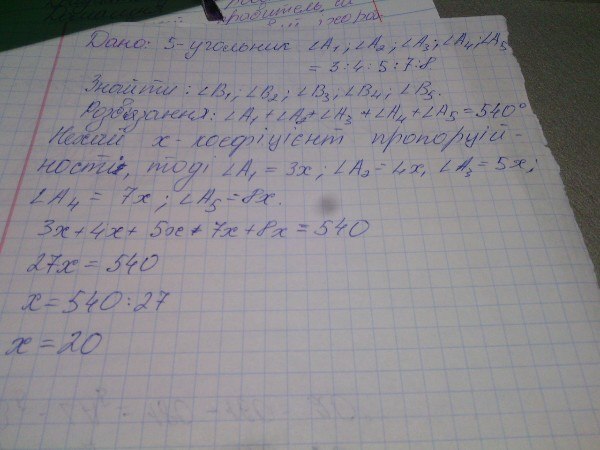 Дано: 5-угольник ∠A₁; ∠A₂; ∠A₃; ∠A₄; ∠A₅
= 3:4:5:7:8
Знайти: ∠B₁; ∠B₂; ∠B₃; ∠B₄; ∠B₅.
Розвязання: ∠A₁+∠A₂+∠A₃+∠A₄+∠A₅=540°
Нехай x-коефіцієнт пропорцій-
ності, тоді ∠A₁=3x; ∠A₂=4x, ∠A₃=5x;
∠A₄=7x; ∠A₅=8x.
3x+4x+5x+7x+8x=540
27x=540
x=540:27
x=20